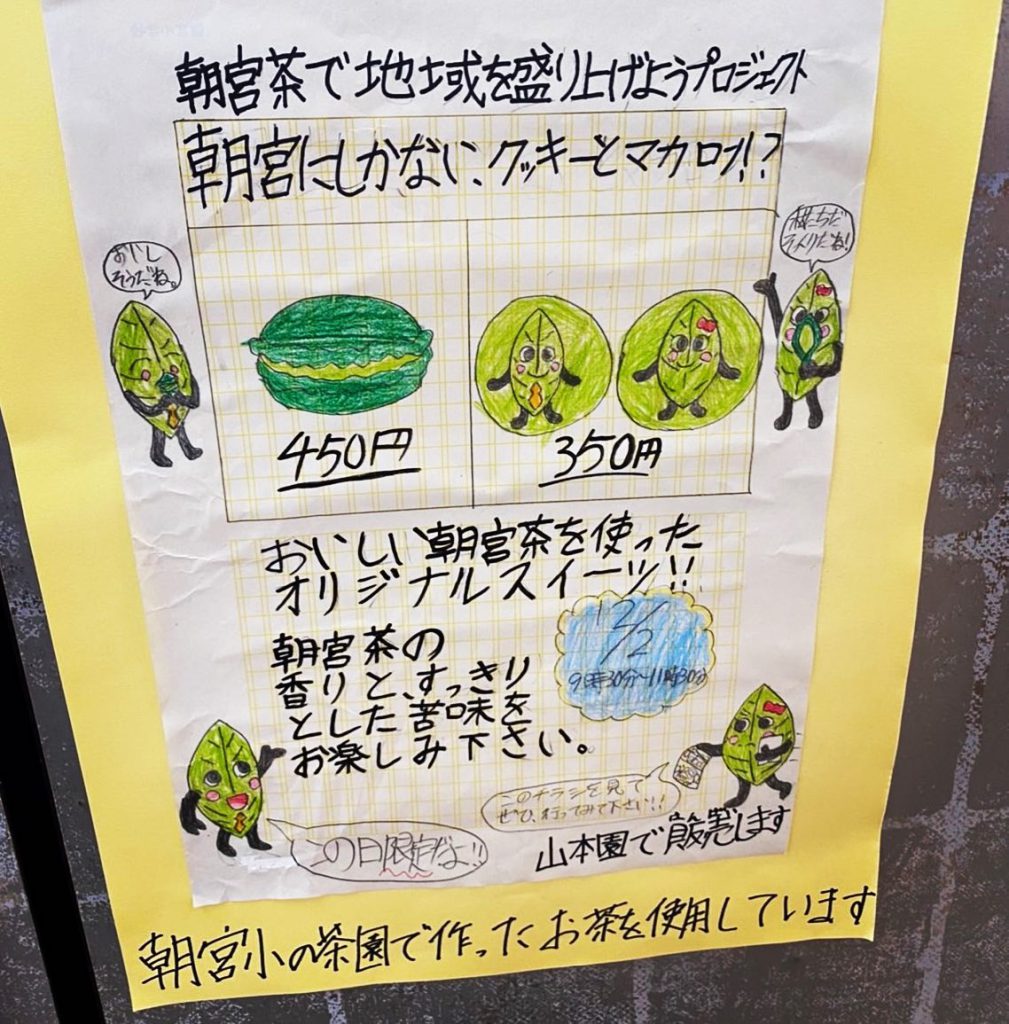 朝宮茶で地域を盛り上げようプロジェクト
朝宮にしかない、クッキーとマカロン!?
おいし
そうだね。
私たちだ
そっくりだね!
450円
350円
おいしい朝宮茶を使った
オリジナルスイーツ!!
12/2
9時30分~11時30分
朝宮茶の
香りと、すっきり
とした苦味を
お楽しみ下さい。
このチラシを見て
ぜひ、行ってみて下さい!!
この日限定だよ!!
山本園で販売します
朝宮小の茶園で作ったお茶を使用しています